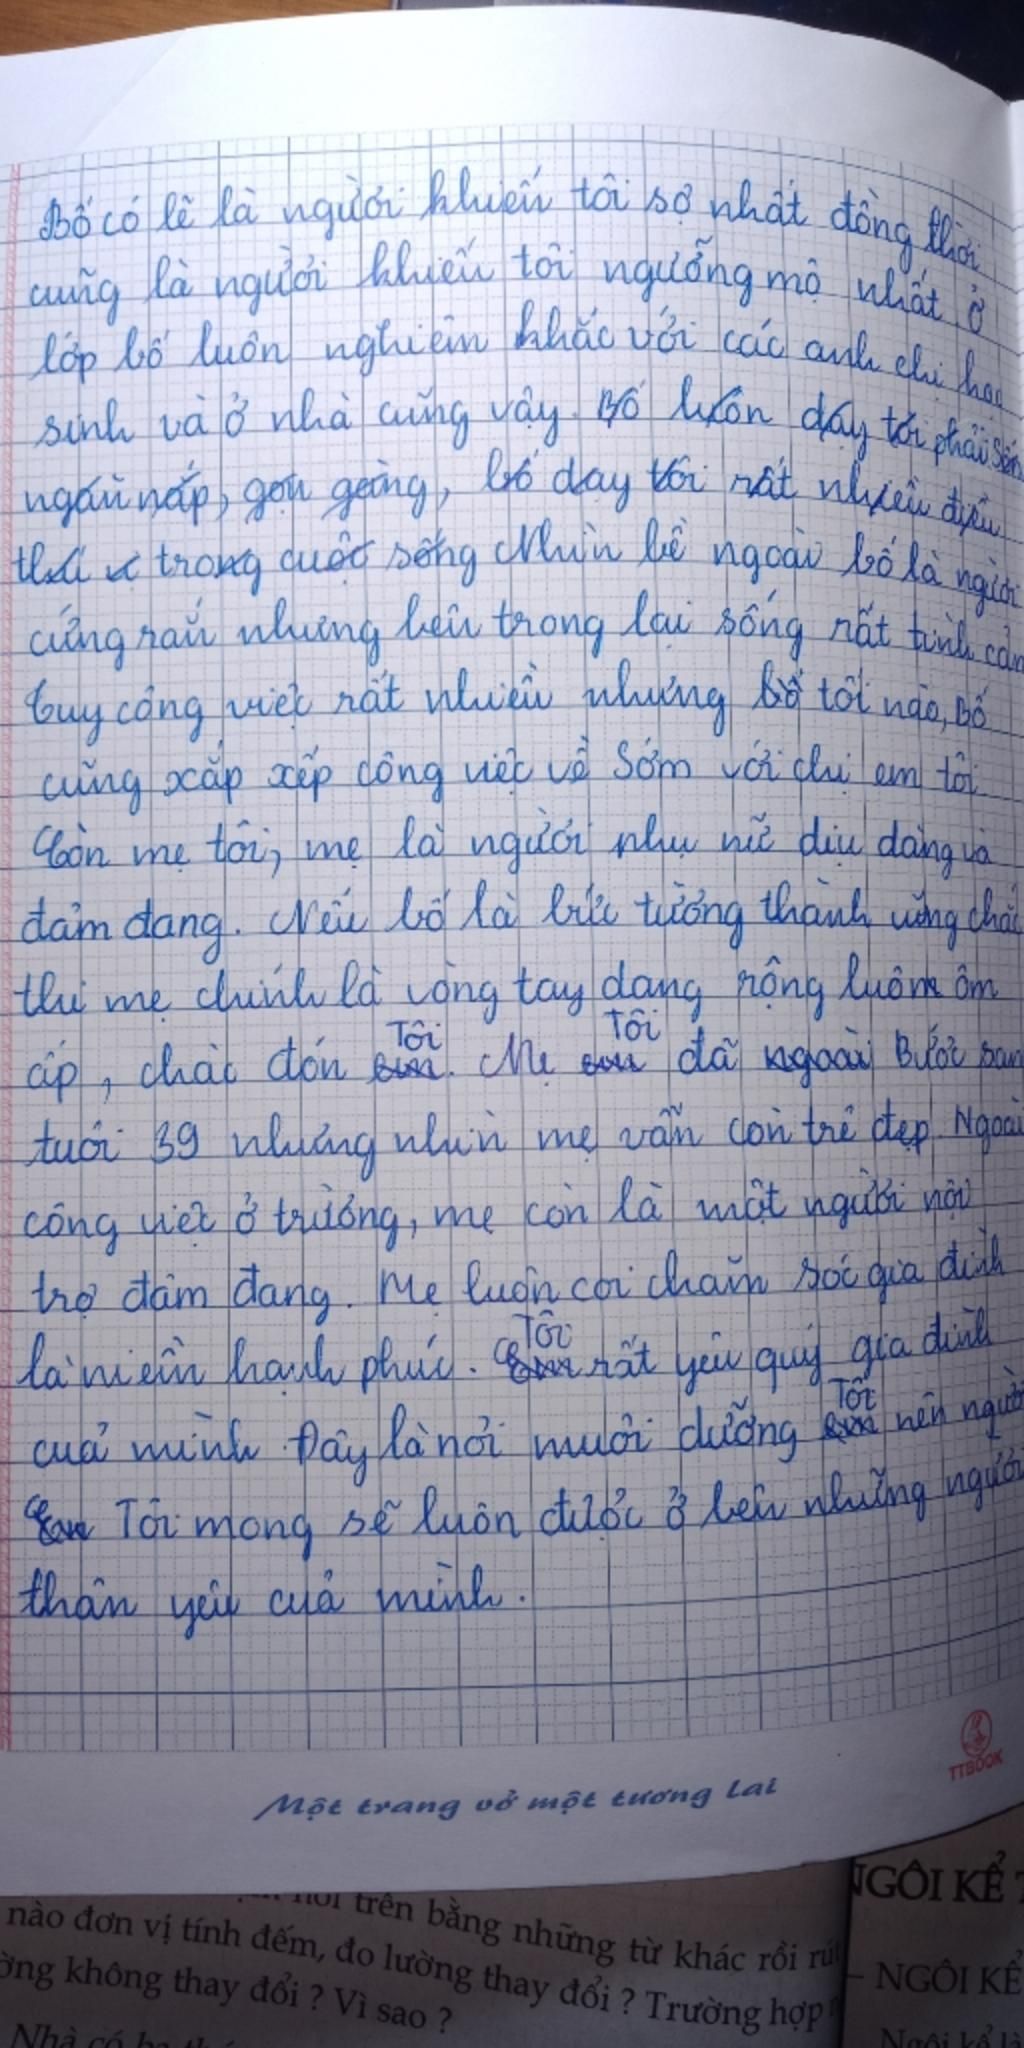 Bố có lẽ là người khiến tôi sợ nhất đồng thời
cũng là người khiến tôi ngưỡng mộ nhất ở
lớp bố luôn nghiêm khắc với các anh chị học
sinh và ở nhà cũng vậy. Bố luôn dạy tôi phải sống
ngăn nắp, gọn gàng, bố dạy tôi rất nhiều điều
trong cuộc sống Nhìn bề ngoài bố là người
cứng rắn nhưng bên trong lại sống rất tình cảm
tuy công việc rất nhiều nhưng tối nào, Bố
cũng xắp xếp công việc về sớm với chị em tôi
Còn mẹ tôi, mẹ là người phụ nữ dịu dàng và
đảm đang. Nếu bố là bức tường thành vững chắc
thì mẹ chính là vòng tay dang rộng luôn ôm
ấp, chào đón Tôi. Mẹ Tôi đã ngoài Bước sang
tuổi 39 nhưng nhìn mẹ vẫn còn trẻ đẹp. Ngoài
công việc ở trường, mẹ còn là một người nội
trợ đảm đang. Mẹ luôn coi chăm sóc gia đình
là niềm hạnh phúc. Tôi rất yêu quý gia đình
của mình. Đây là nơi nuôi dưỡng Tôi nên người
Tôi mong sẽ luôn được ở bên những người
thân yêu của mình.
TTBOOK
Một trang vở một tương lai
nói trên bằng những từ khác rồi rút
nào đơn vị tính đếm, đo lường thay đổi ? Trường hợp
không thay đổi ? Vì sao ?
NGÔI KỂ
– NGÔI KỂ
Ngôi kể là